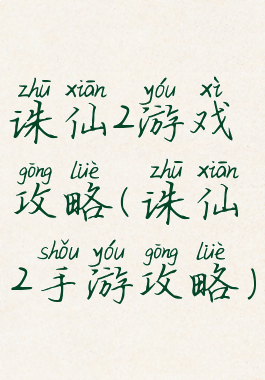 zhū xiān yóu xì
诛仙2游戏
gōng lüè zhū xiān
攻略(诛仙
shǒu yóu gōng lüè
2手游攻略)